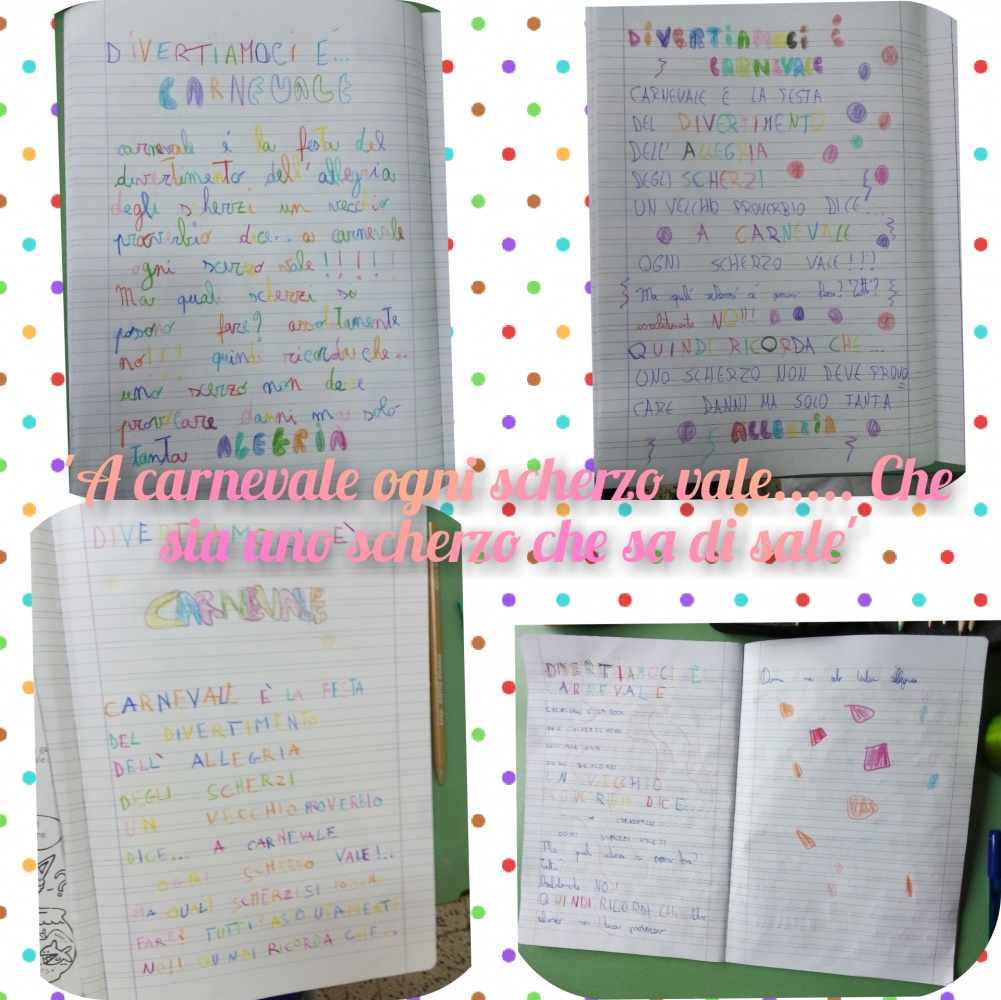 DIVERTIAMOCI É...
CARNEVALE
carnevale é la festa del
divertimento dell'allegria
degli scherzi un vecchio
proverbio dice.. a carnevale
ogni scurzo vale!!!!!
Ma quali scherzi si
posono fare? assolutamente
no!!! quindi ricorda che..
uno scerzo non deve
provocare danni ma solo
tanta ALEGRIA
DIVERTIAMOCI É
CARNEVALE
CARNEVALE É LA FESTA
DEL DIVERTIMENTO
DELL' ALLEGRIA
DEGLI SCHERZI
UN VECCHIO PROVERBIO DICE...
A CARNEVALE
OGNI SCHERZO VALE!!!
Ma quali scherzi si fare? Tutti?
assolutamente NO!!!
QUINDI RICORDA CHE...
UNO SCHERZO NON DEVE PROVO
CARE DANNI MA SOLO TANTA
ALLEGRIA
'A carnevale ogni scherzo vale..... Che
sia uno scherzo che sa di sale'
DIVERTIAMOCI È
CARNEVALE
CARNEVALE È LA FESTA
DEL DIVERTIMENTO
DELL' ALLEGRIA
DEGLI SCHERZI
UN VECCHIO PROVERBIO
DICE... A CARNEVALE
OGNI SCHERZO VALE!..
MA QUALI SCHERZI SI POSONO
FARE? TUTTI? ASOLUTAMENTE
NO!! QUINDI RICORDA CHE...
DIVERTIAMOCI È
CARNEVALE
UN VECCHIO
PROVERBIO DICE...
CARNEVALE
OGNI SCHERZO VALE!!
Ma quali si fare?
Tutti?
NO!!
QUINDI RICORDA CHE
ma solo tanta allegria